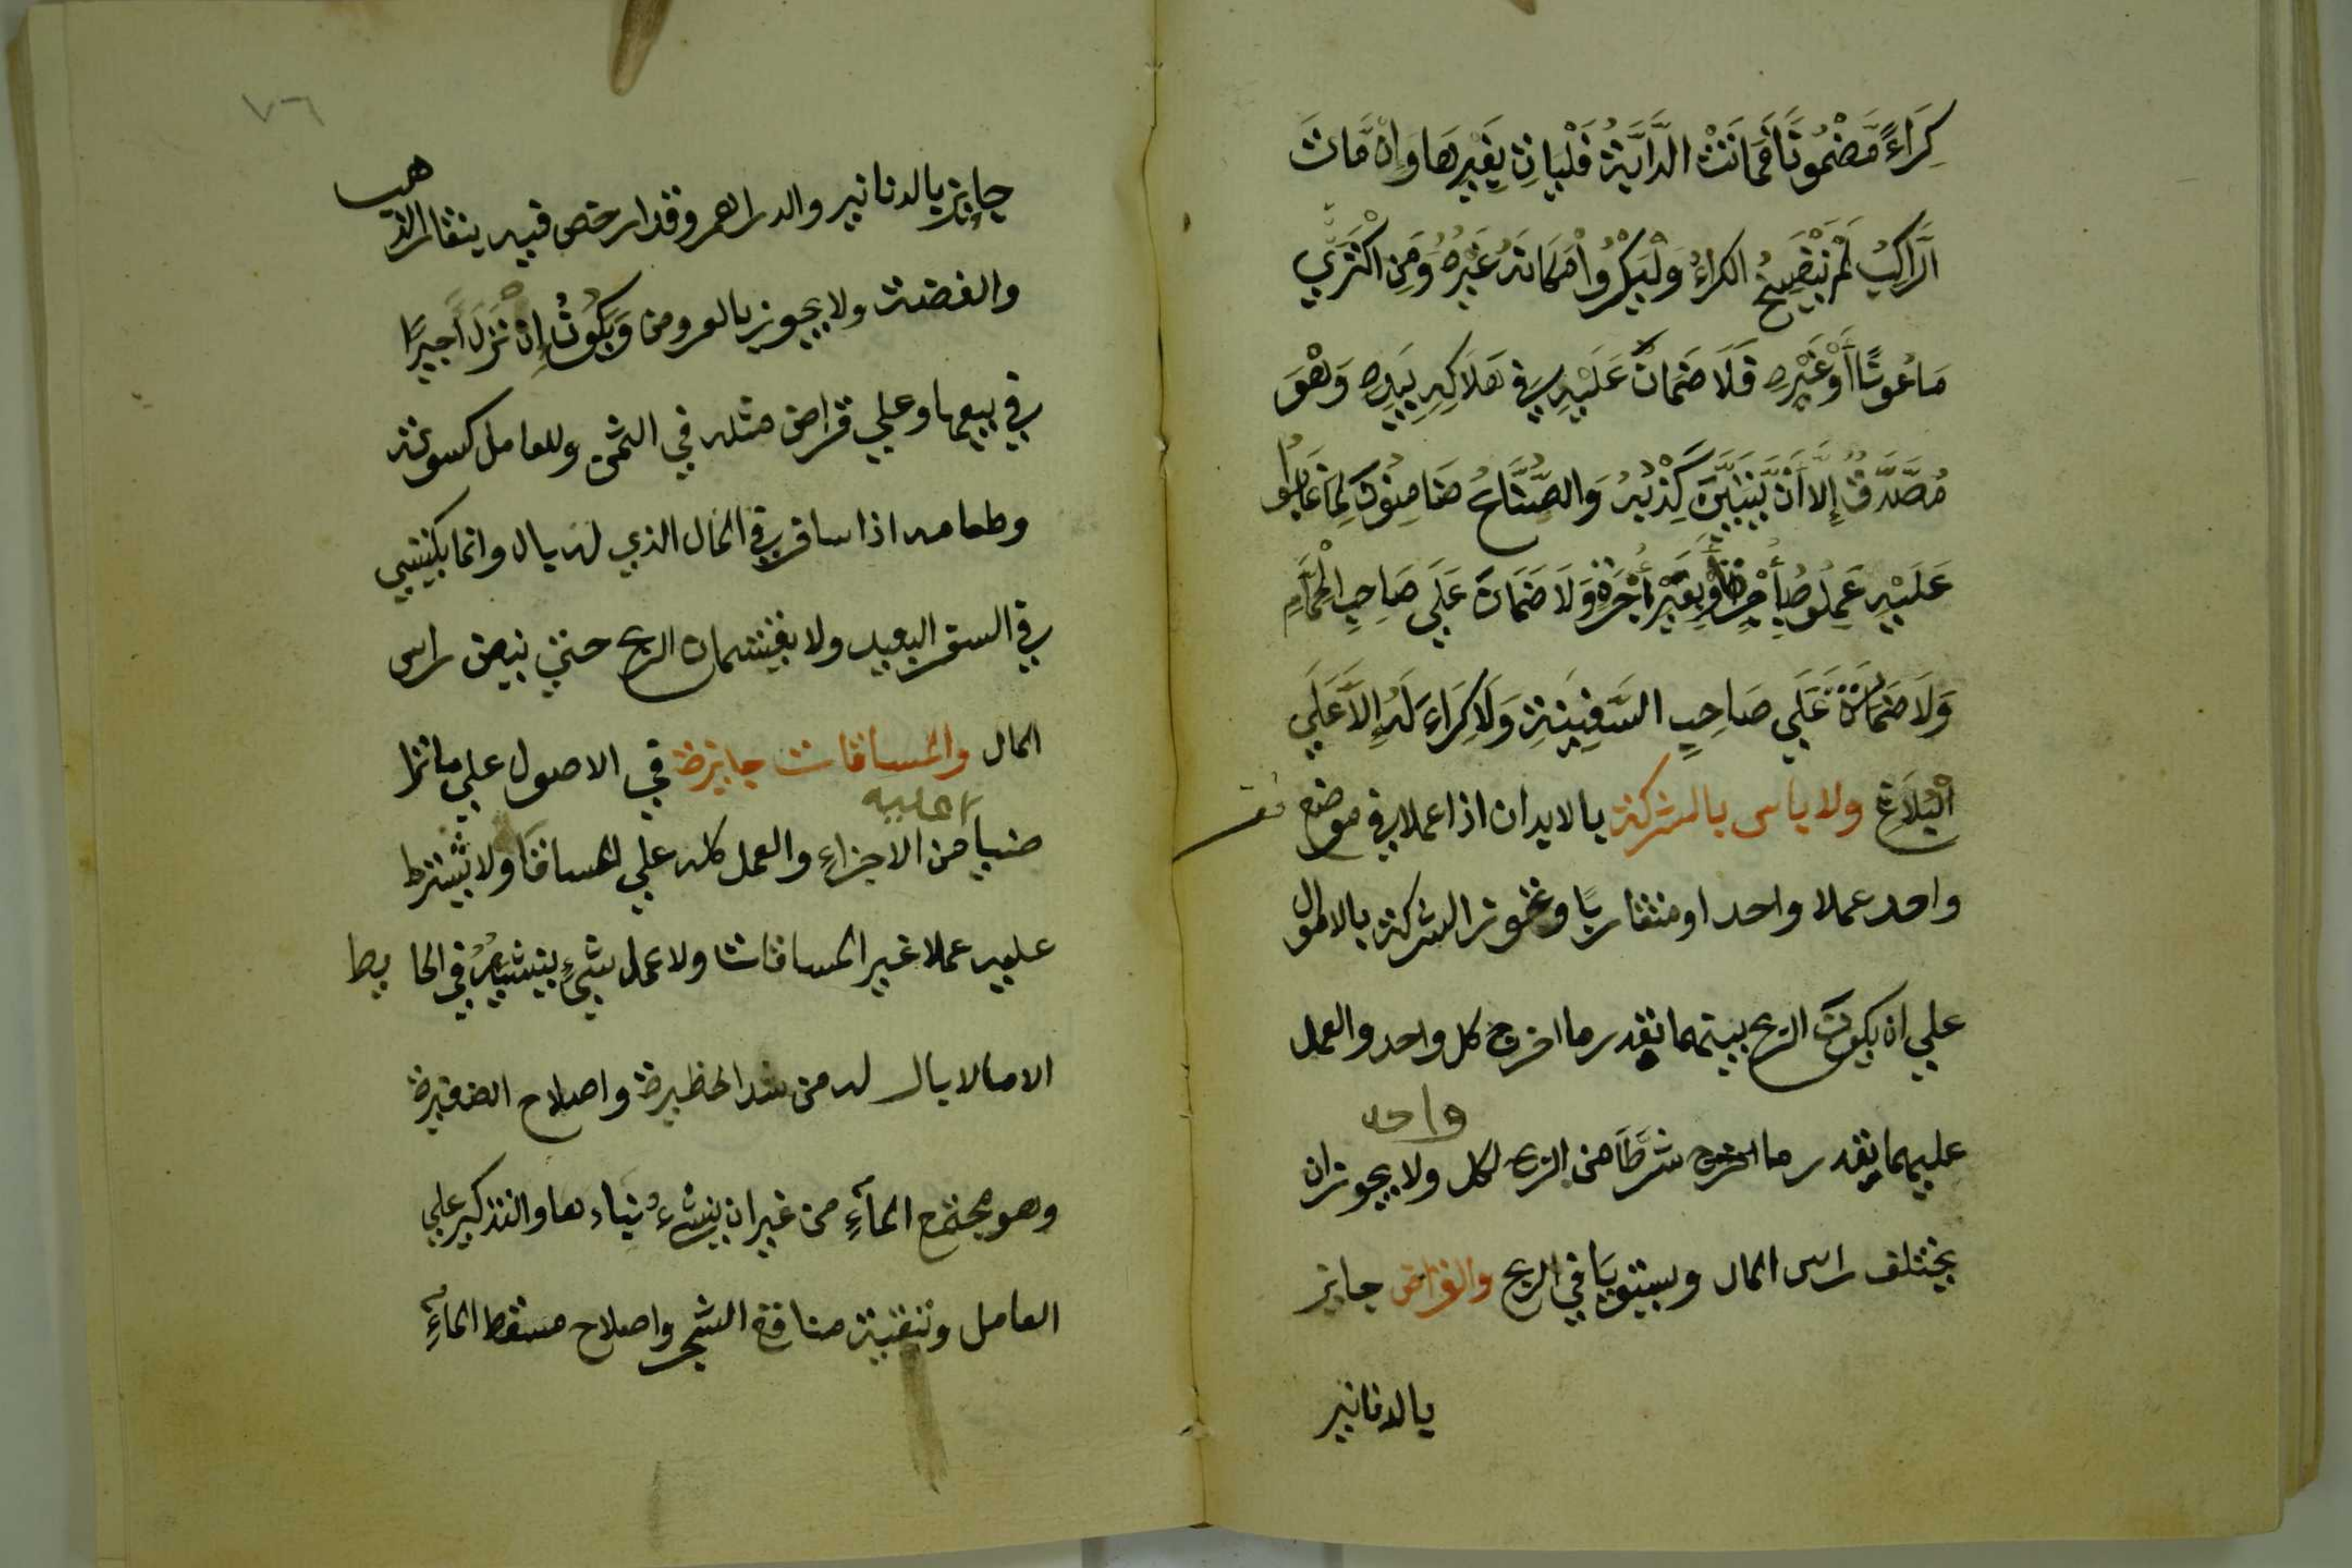 كِرَاءً مَّضْمُونًا فَمَاتَتْ الدَّابَّةُ فَلْيَاتِ بِغَيْرِهَا وَإِنْ مَّاتَ
الرَّاكِبُ لَمْ يَنْفَسِخْ الكراءُ وَلْيَكْرُوا مَكَانَهُ غَيْرَهُ وَمَنِ اكْتَرَي
مَاعُونًا أَوْ غَيْرِهِ فَلَا ضَمَانَ عَلَيْهِ فِي هَلَاكِهِ بِيَدِهِ وَهْوَ
مُصَدَّقٌ إِلا أَنْ يَّتَبَيَّنَ كِذْبُهُ وَالصُّنَّاعُ ضَامِنُونَ لِمَا غَابُوا
عَلَيْهِ عَمِلُوهُ بِأَجْرٍ أَوْ بِغَيْرِ أُجْرَةٍ وَلَا ضَمَانَ عَلَي صَاحِبِ الْحَمَّامِ
وَلَا ضَمَانَ عَلَي صَاحِبِ السَّفِينَةِ وَلَا كِرَاءَ لَهُ إِلَّا عَلَي
الْبَلَاغِ ولا باس بالشركة بالابدان اذا عملا في موضع
واحد عملا واحدا او متقاربًا وتجوز الشركة بالاموال
علي ان يكون الربح بينهما بقدر ما اخرج كل واحد والعمل
عليهما بقدر ما اخرج شرطًا من الربح لكل ولا يجوز ان
واحد
يختلف راس المال ويستويا في الربح والقراض جايز
بالدنانير
٧٦
جايز بالدنانير والدراهم وقد ارخص فيه بنقار الذهب
والفضة ولا يجوز بالعروض وَيَكُونُ إِنْ نَزَلَ أَجِيرًا
في بيعها وعلي قراض مثله في الثمن وللعامل كسوته
وطعامه اذا سافر في المال الذي له بال وانما يكتسي
في السفر البعيد ولا يقتسمان الربح حتي ينض راس
المال والمساقات جايزة في الاصول علي ما ترا
ضيا من الاجزاءِ والعمل كله علي المساقَا ولا يشترط
عليه
عليه عملا غير المساقات ولا عمل شيءٍ ينشيهُ في الحايط
الا ما لا بال له من شد الحظيرة واصلاح الضفيرة
وهو مجتمع المآءِ من غير ان ينشيءُ بناءها والتذكير علي
العامل وتنقية مناقع الشجر واصلاح مسقط المآءِ